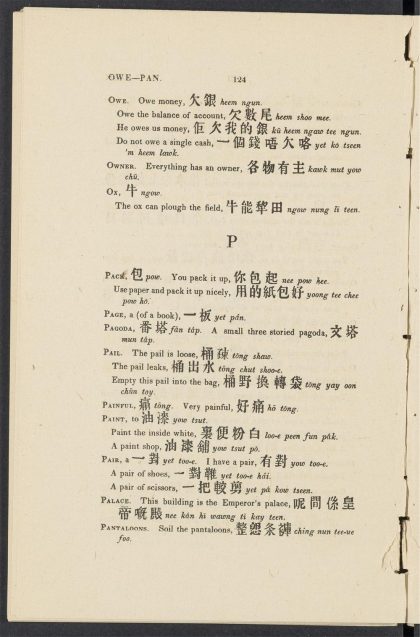 OWE—PAN. 124
OWE. Owe money, 欠銀 heem ngun.
Owe the balance of account, 欠數尾 heem shoo mee.
He owes us money, 佢欠我的銀 kü heem ngaw tee ngun.
Do not owe a single cash, 一個錢唔欠咯 yet kó tseen
'm heem lawk.
OWNER. Everything has an owner, 各物有主 kawk mut yow
chü.
OX, 牛 ngow.
The ox can plough the field, 牛能犂田 ngow nung li teen.
P
PACK, 包 pow. You pack it up, 你包起 nee pow hee.
Use paper and pack it up nicely, 用的紙包好 yoong tee chee
pow hó.
PAGE, a (of a book), 一板 yet pán.
PAGODA, 番塔 fán táp. A small three storied pagoda, 文塔
mun táp.
PAIL. The pail is loose, 桶 tòng shaw.
The pail leaks, 桶出水 tòng chut shoo-e.
Empty this pail into the bag, 桶野換轉袋 tòng yay oon
chün toy.
PAINFUL, tòng. Very painful, 好痛 hó tòng.
PAINT, to 油漆 yow tsut.
Paint the inside white, 裏便粉白 loo-e peen fun pák.
A paint shop, 油漆舖 yow tsut pò.
PAIR, a 一對 yet too-e. I have a pair, 有對 yow too-e.
A pair of shoes, 一對鞋 yet too-e hái.
A pair of scissors, 一把較剪 yet pá kow tseen.
PALACE. This building is the Emperor's palace, 呢間係皇
帝嘅殿 nee kán hi wawng ti kay teen.
PANTALOONS. Soil the pantaloons, 整 条褲 ching nun tee-ue
foo.